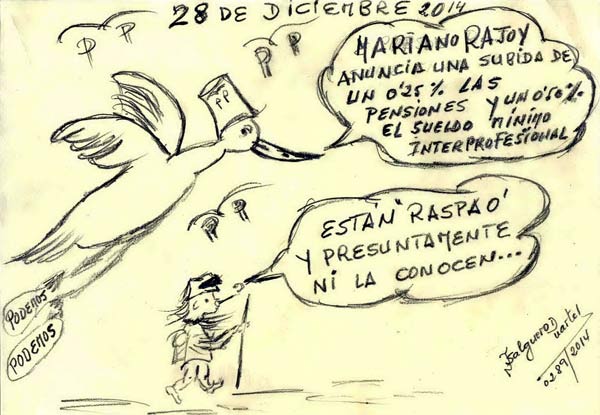 28 DE DICIEMBRE 2014
P P
P P
PP
MARIANO RAJOY
ANUNCIA UNA SUBIDA DE
UN 0'25% LAS
PENSIONES Y UN 0'50%
EL SUELDO MÍNIMO
INTERPROFESIONAL
P P
ESTÁN "RASPAO"
Y PRESUNTAMENTE
NI LA CONOCEN...
PODEMOS
PODEMOS
Salguero D
0289/2014